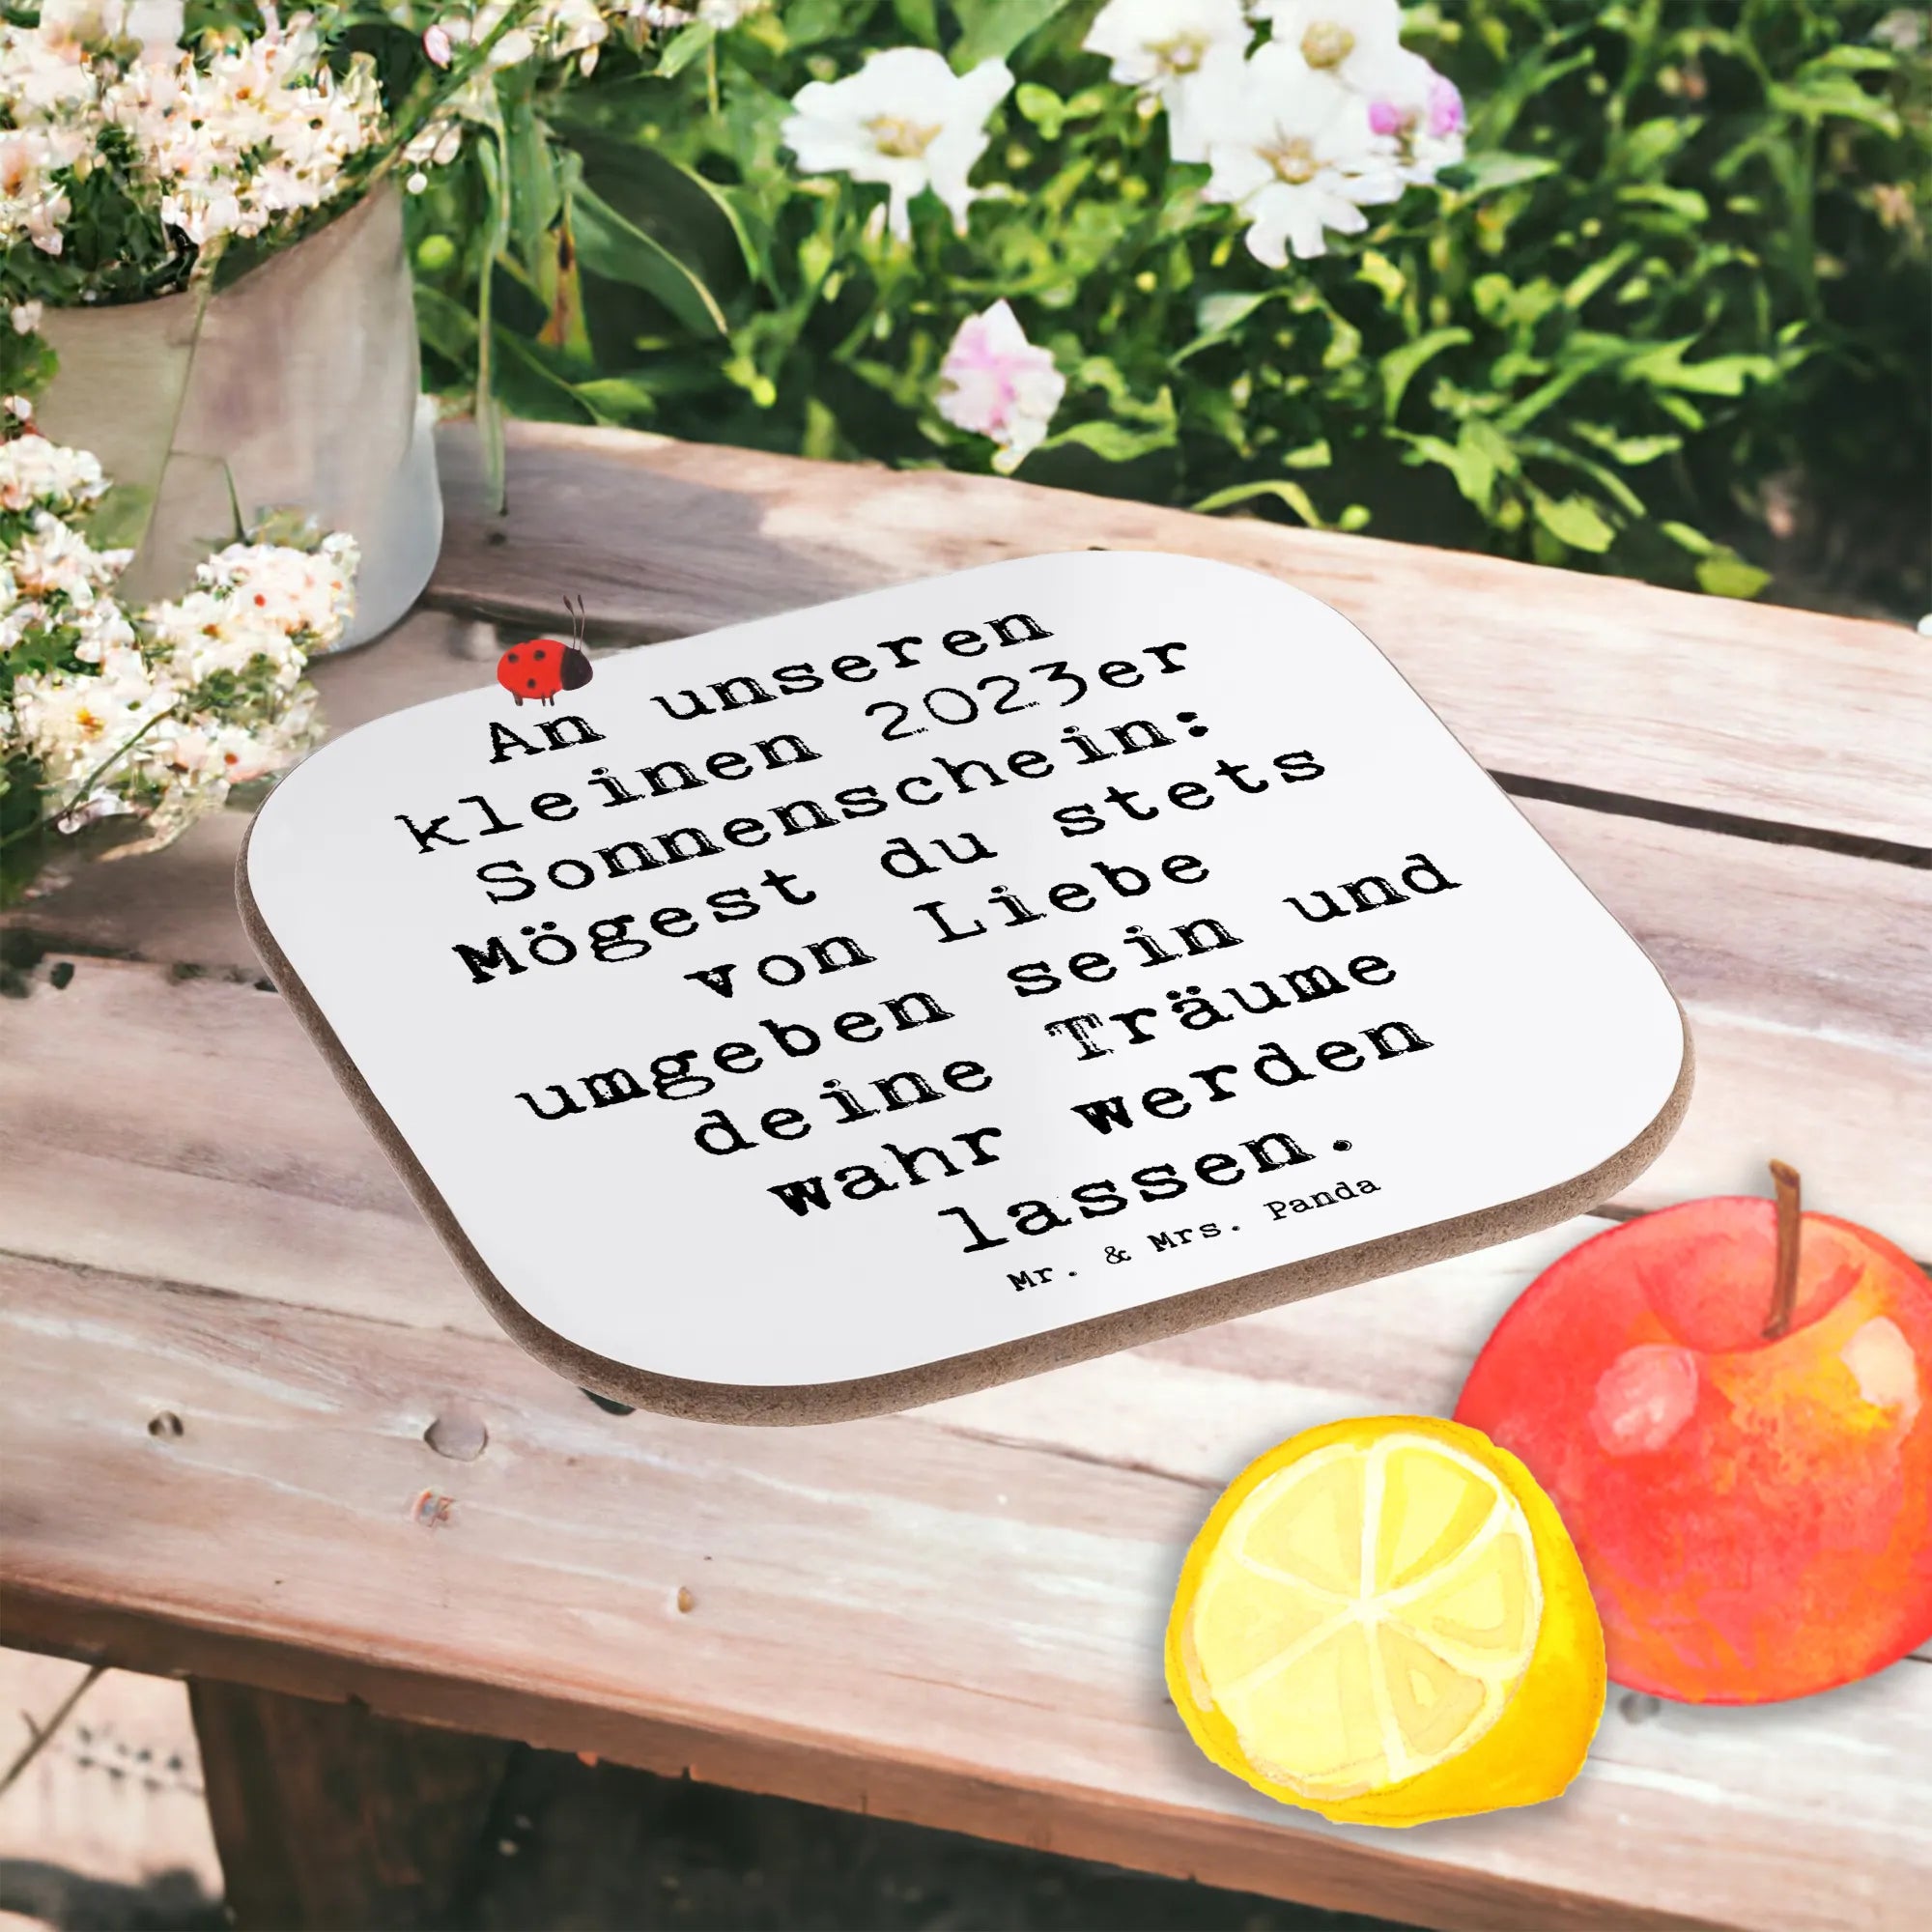 An unseren
kleinen 2023er
Sonnenschein:
Mögest du stets
von Liebe
umgeben sein und
deine Träume
wahr werden
lassen.
Mr. & Mrs. Panda